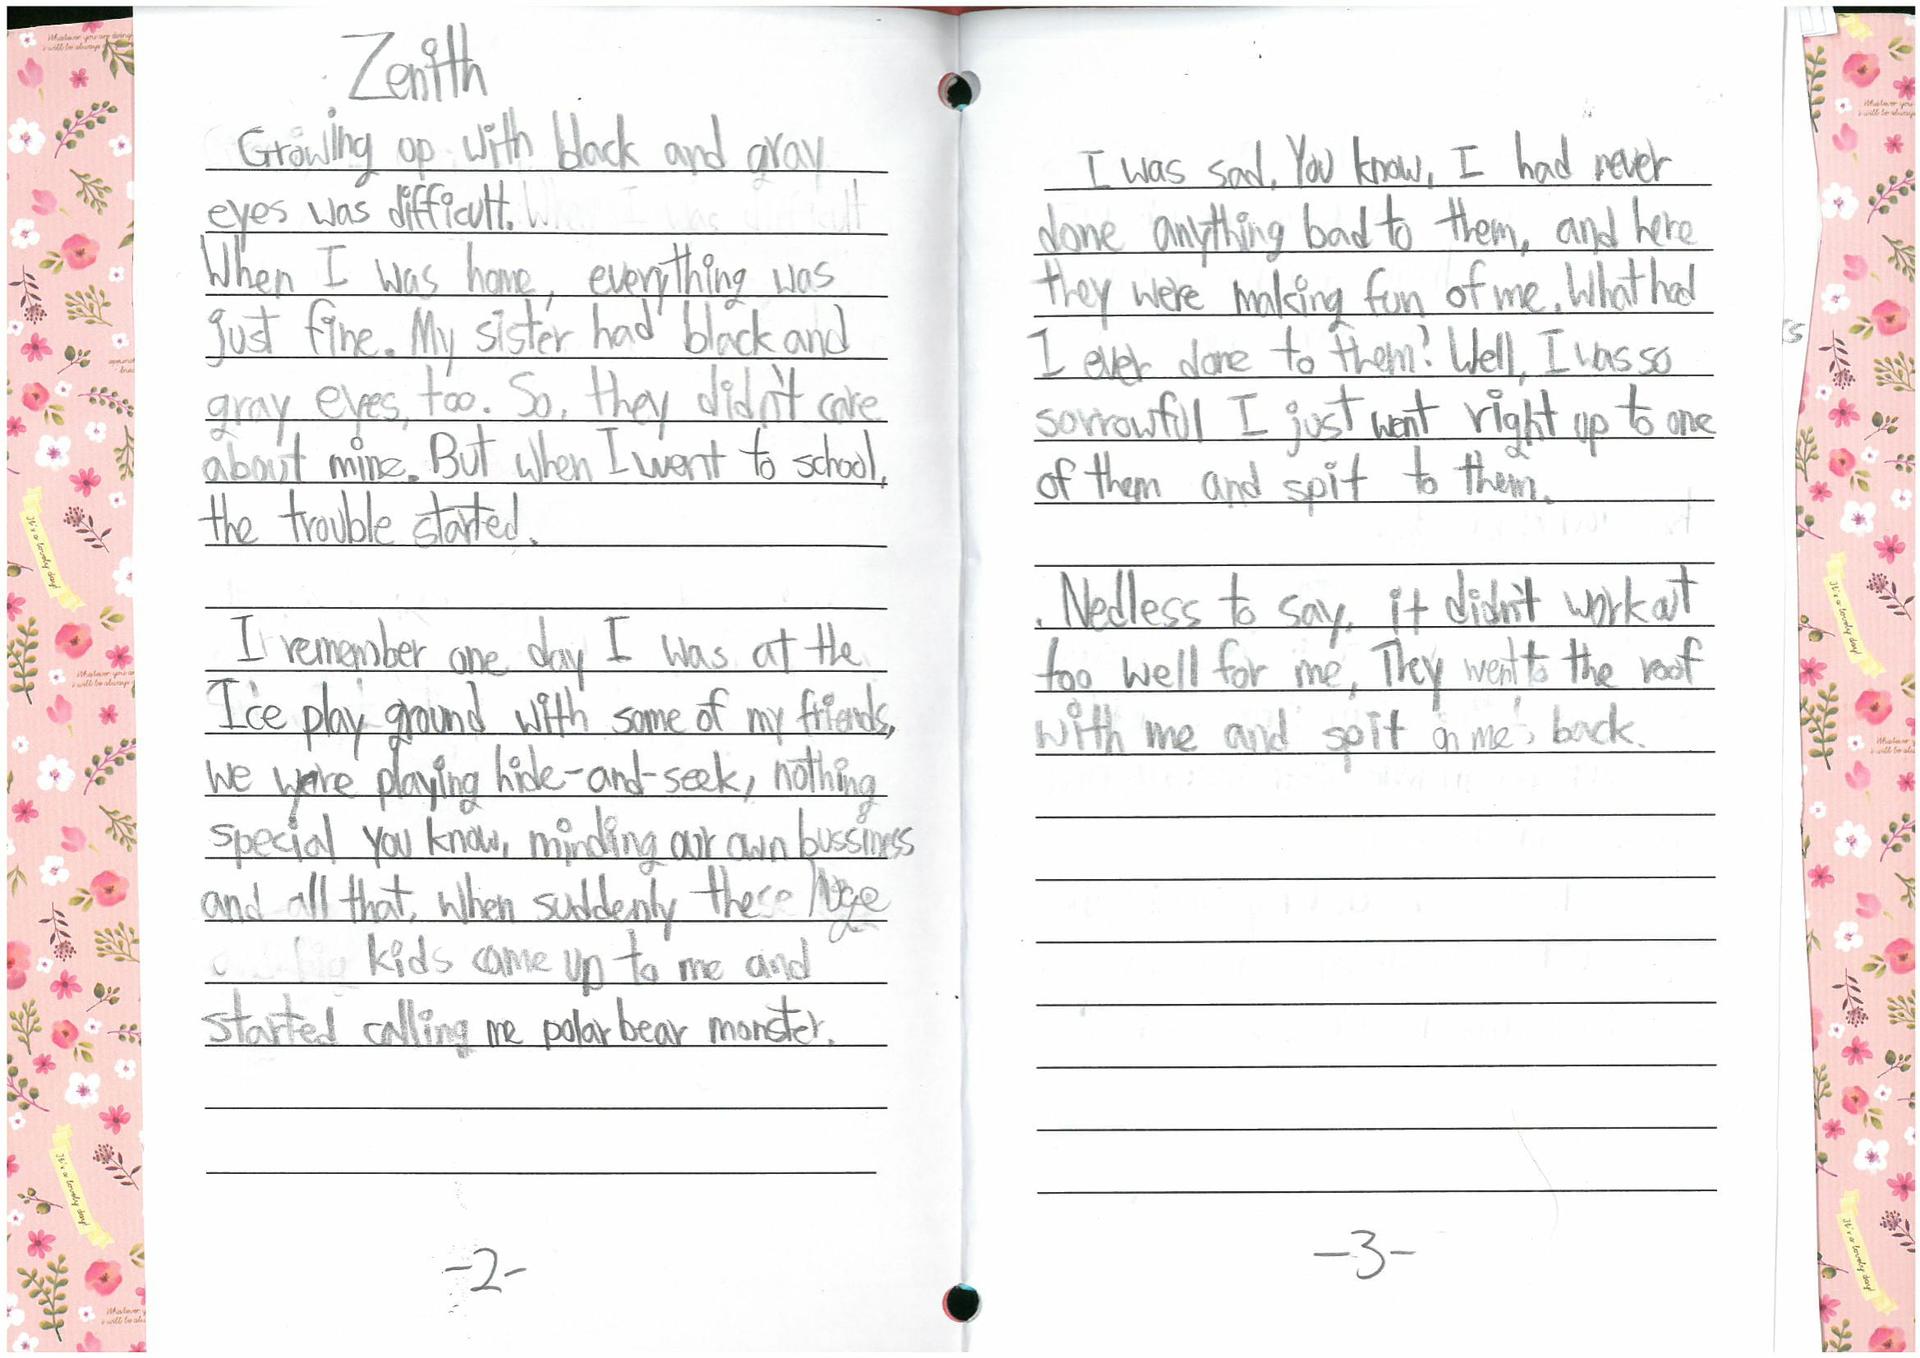 Zenith
Growing up with black and gray
eyes was difficult.
When I was home, everything was
just fine. My sister had black and
gray eyes, too. So, they didn't care
about mine. But when I went to school,
the trouble started.
I remember one day I was at the
Ice play ground with some of my friends,
we were playing hide-and-seek, nothing
special you know, minding our own bussiness
and all that, when suddenly these huge
kids came up to me and
started calling me polar bear monster.
-2-
I was sad. You know, I had never
done anything bad to them, and here
they were making fun of me. What had
I ever done to them? Well, I was so
sorrowful I just went right up to one
of them and spit to them.
Nedless to say, it didn't work out
too well for me, They went to the roof
with me and spit on me, back.
-3-
Whatever you are doing
i will be always
It's a lovely day!
It's a lovely day!
It's a lovely day!
It's a lovely day!